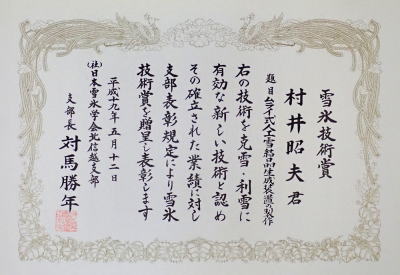 雪氷技術賞
村井昭夫君
題目 ムライ式人工雪結晶生成装置の製作
右の技術を克雪・利雪に
有効な新しい技術と認め
その確立された業績に対し
支部表彰規定により雪氷
技術賞を贈呈し表彰します
平成十九年五月十二日
(社)日本雪氷学会北信越支部
支部長 対馬勝年